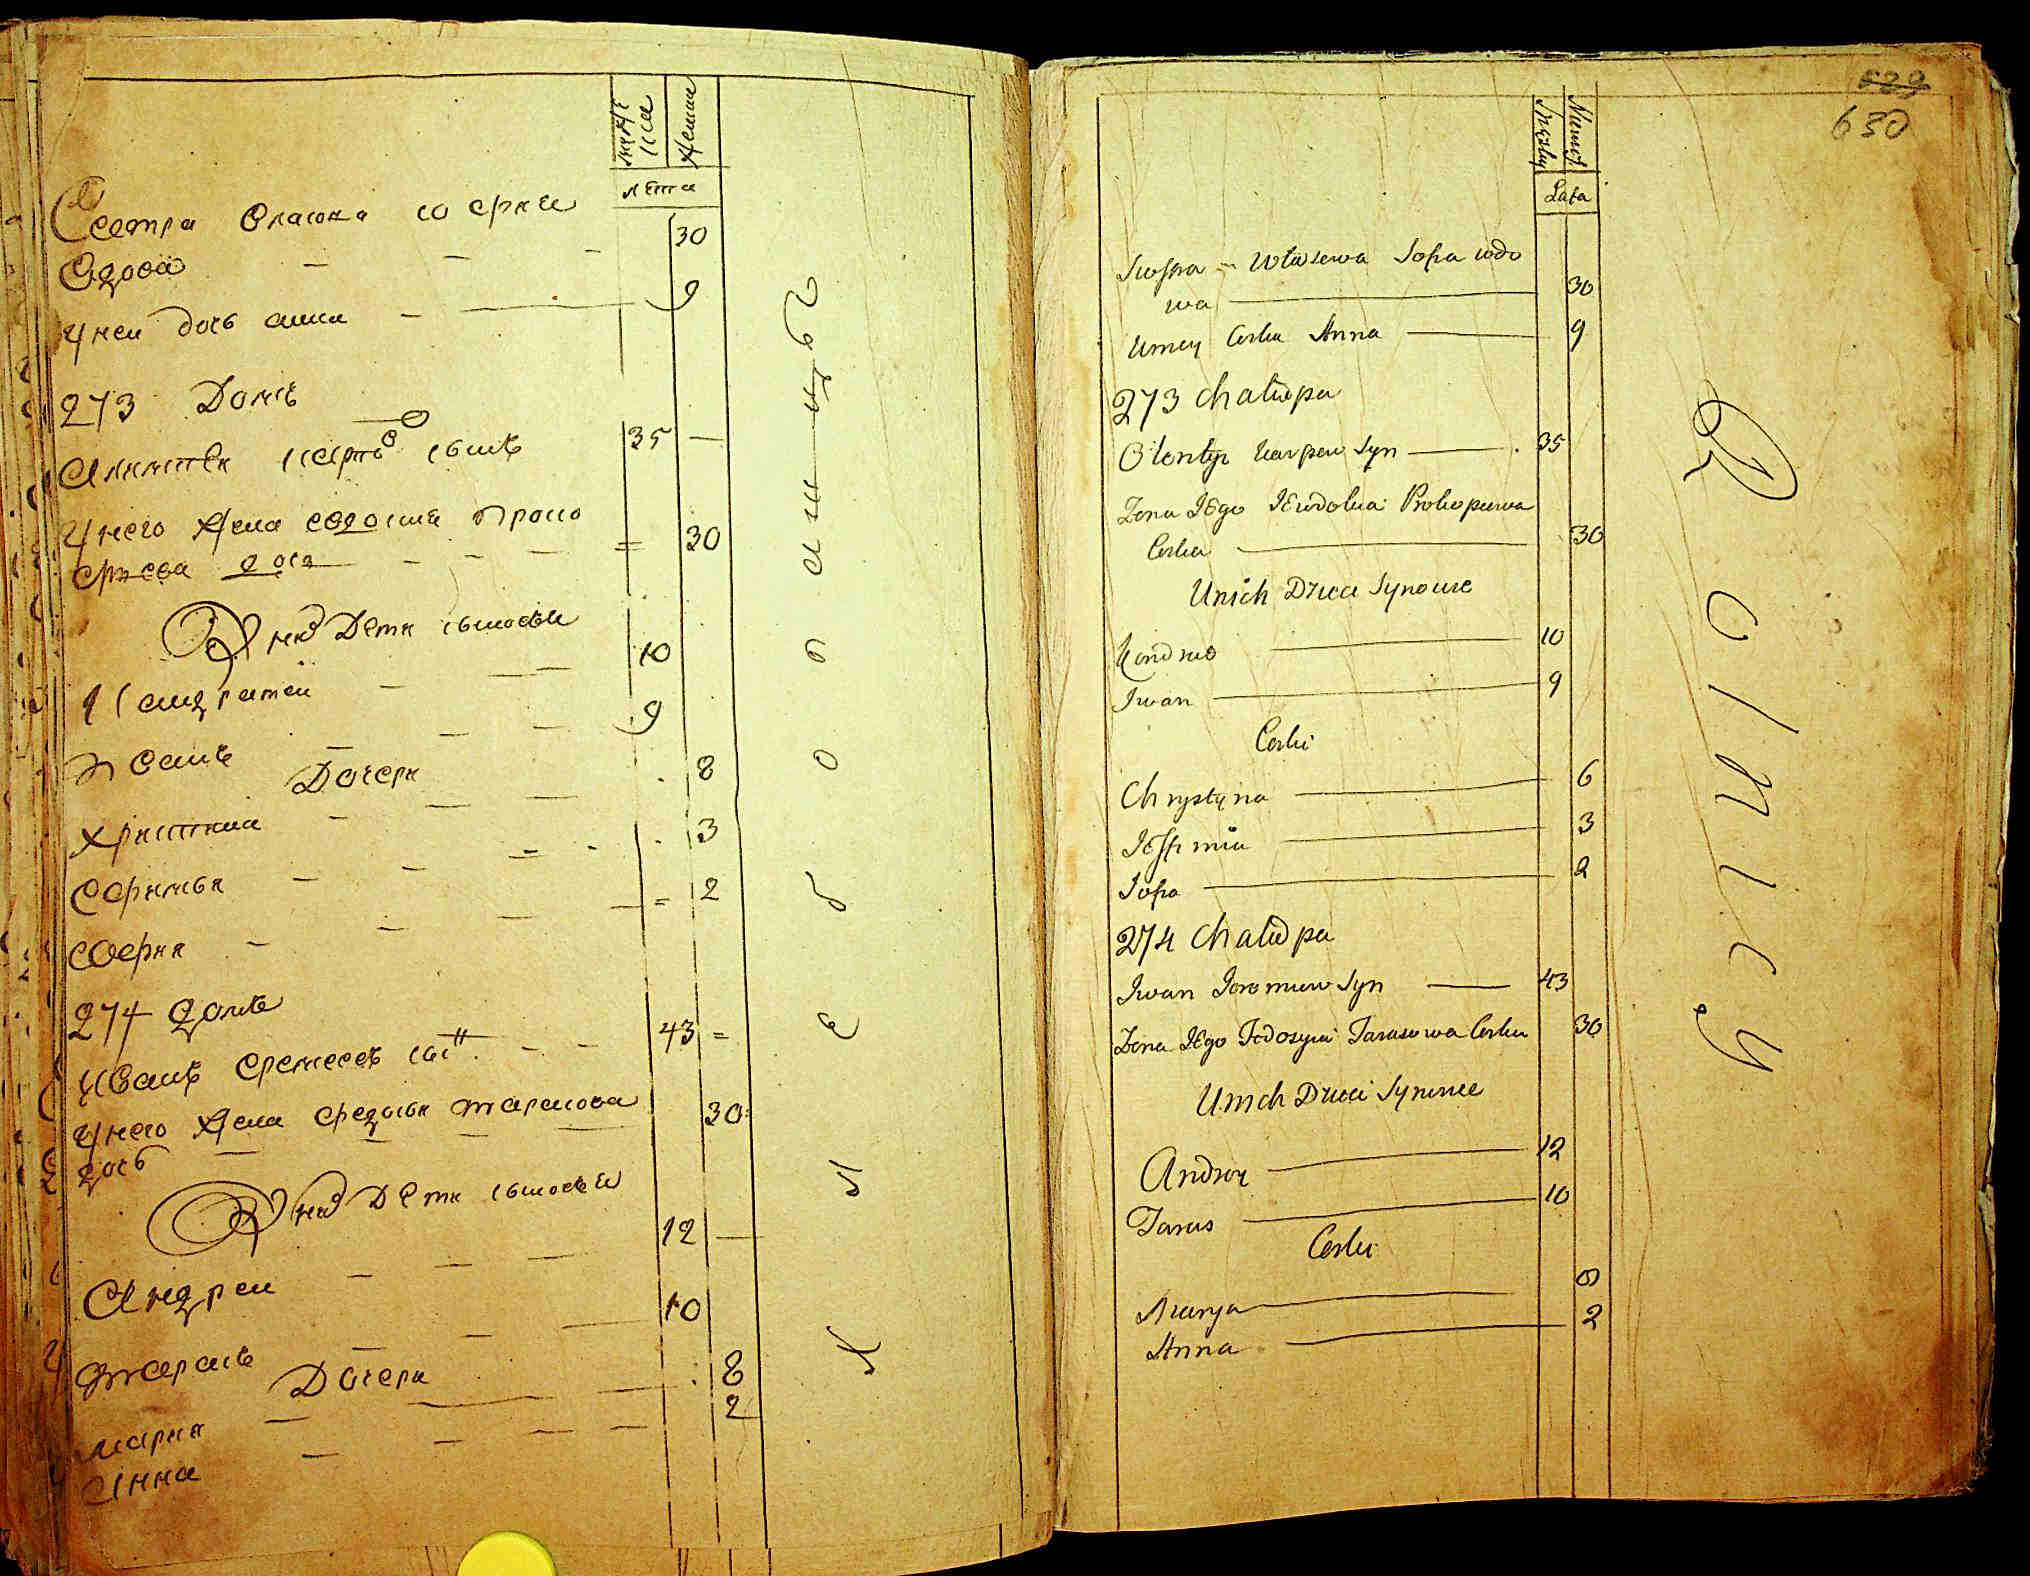 мужеска
женска
лета
Сестра Власова Софиа
вдова 30
у неи дочь анна 9
273 Домъ
Климентеи карповъ сынъ 35
у него жена евдокиа проко
фьева дочь 30
У них Дети сыновеи
Кандратеи 10
Иванъ 9
Дочери
Христина 8
Еофимья 3
Соефия 2
274 домъ
Иванъ Еремеевъ сынъ 43
у него жена федосья тарасова
дочь 30
У них Дети сыновеи
Андреи 12
тарасъ 10
Дочери
Мария 8
Анна 2
Хлебопашцы
529
630
Męzkey
Lata
Siostra Własowa Sofia wdo
wa 30
Uniey Corka Anna 9
273 Chałupa
Olentyi Karpow Syn 35
Zona JEgo JEwdokia Prokopiewa
Corka 30
Unich Dzieci Synowie
Kondrat 10
Jwan 9
Corki
Chrystyna 6
JEfimia 3
Sofia 2
274 Chałupa
Jwan Joromiew Syn 43
Zona JEgo Fedosyia Tarasowa Corka 30
Unich Dzieci Synowie
Andrey 12
Taras 10
Corki
Marya 8
Anna 2
Rolnicy